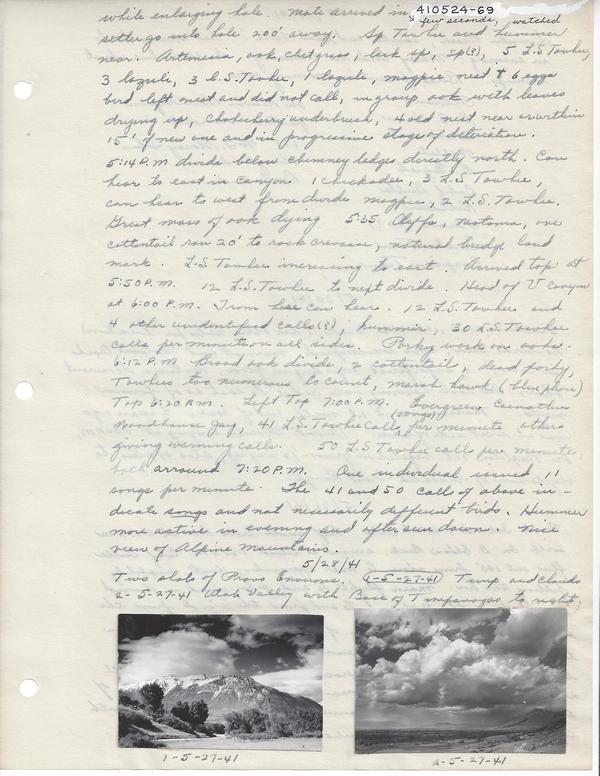 410524-69
while enlarging hole. Mate arrived in few seconds, watched
settee go into hole 200' away. Sp Towhee and hummer
near. Artemisia, oak, chetgrass, lark sp, sp(?), 5 L.S Towhee,
3 lazuli, 3 L.S. Towhee, 1 lazuli, magpie nest & 6 eggs
bird left nest and did not call, in group oak with leaves
drying up, Chokecherry underbrush, 4 old nest near or within
15' of new one and in progressive stage of deteriation.
5:14 P.M divide below chimney ledges directly north. Can
hear to east in Canyon 1 chickadee, 3 L.S Towhee,
can hear to west from divide magpie, 2 L.S. Towhee.
Great mass of oak dying 5:35 Cliffs, one
cottontail ran 20' to rock crevasse, natural bridge land
mark. L.S Towhee increasing to east. Arrived top at
5:50 P.M. 12 L.S. Towhee to next divide. Head of V Canyon
at 6:00 P.M. From here can hear. 12 L.S. Towhee and
4 other unidentified calls(?), hummer, 30 L.S. Towhee
calls per minute on all sides. Porky work on oaks.
6:12 P.M Broad oak divide, 2 cottontail, dead porky,
Towhees too numerous to count, marsh hawk (blue phase)
Top 6:20 P.M. Left Top 7:00 P.M. Evergreen
Woodhouse Jay, 41 L.S. Towhee Calls (songs) per minute others
giving warning calls. 50 L.S Towhee calls per minute,
both arround 7:20 P.M. One individual issued 11
songs per minute. The 41 and 50 calls of above in-
dicate songs and not necessarily different birds. Hummer
more active in evening and after sun down. Nice
view of Alpine Mountains.
5/28/41
Two shots of Provo Environs. 1-5-27-41 Timp and clouds
2-5-27-41 Utah Valley with Base of Timpanogas to right;
1-5-27-41
2-5-27-41